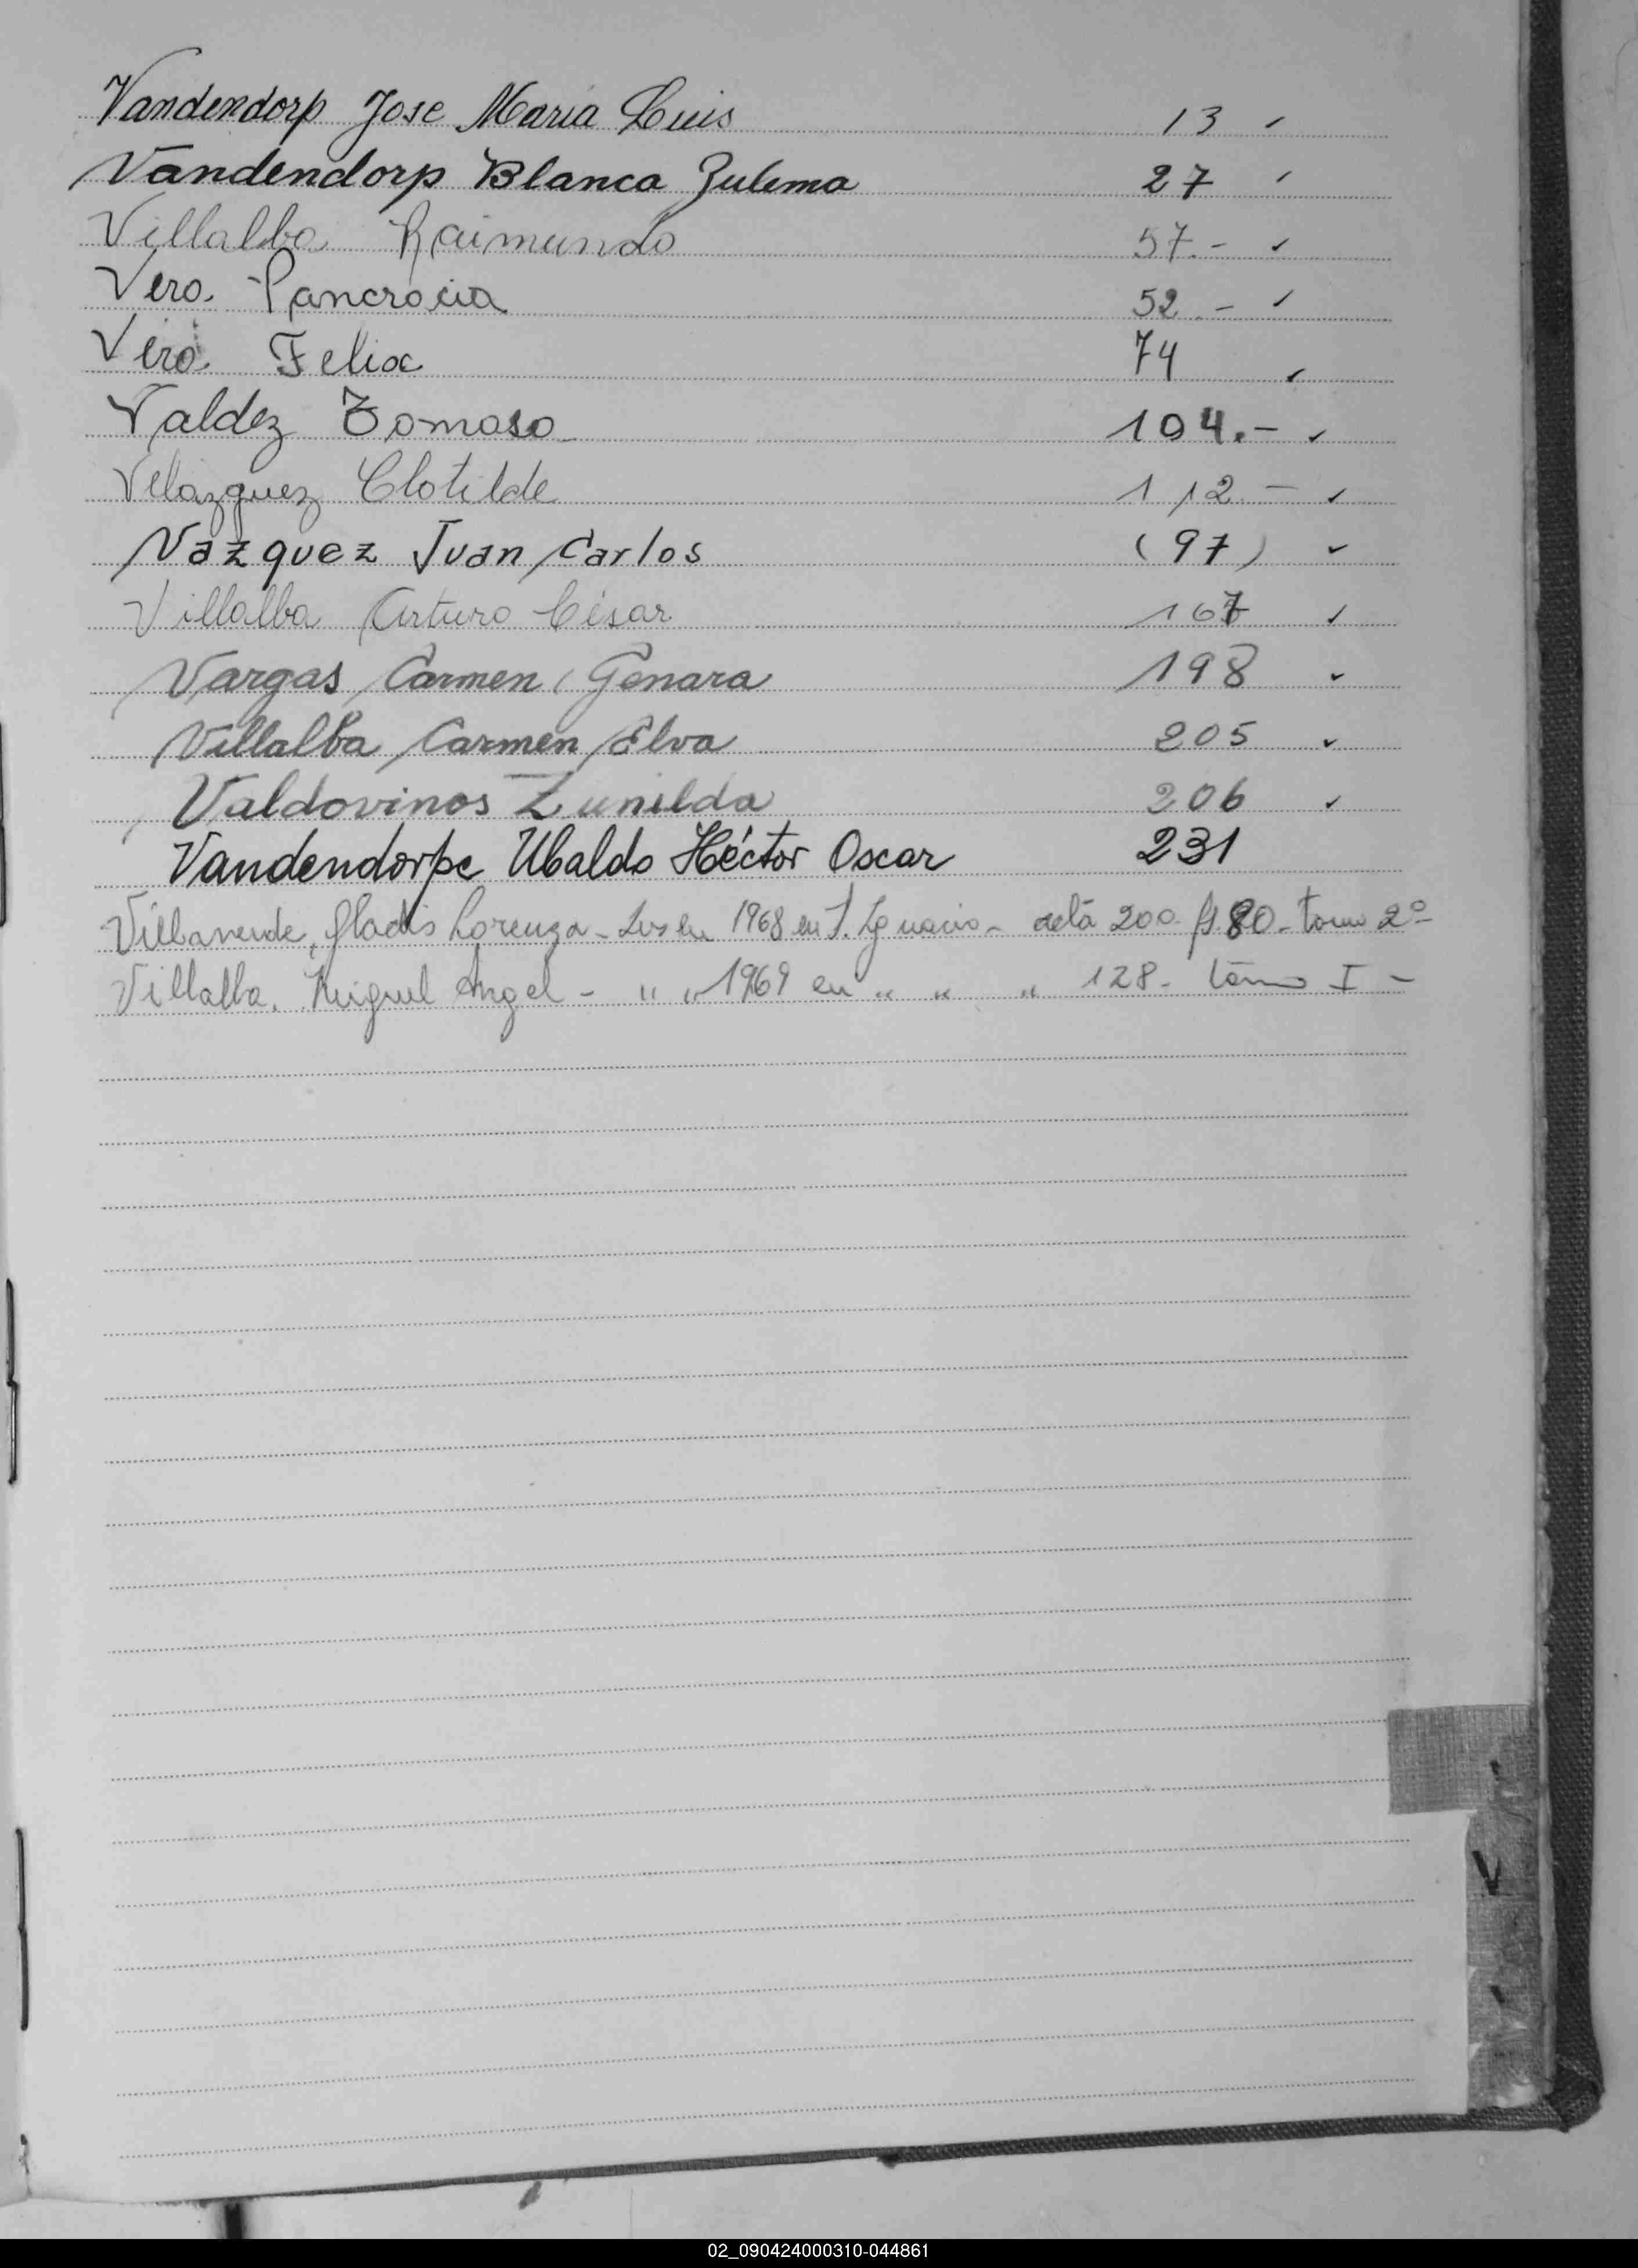 Vandendorp Jose Maria Luis 13 ✓
Vandendorp Blanca Zulema 27 ✓
Villalba Raimundo 57.- ✓
Vero. Pancracia 52.- ✓
Vero. Felix 74 ✓
Valdez Tomasa 104.- ✓
Velazquez Clotilde 112.- ✓
Vazquez Juan Carlos (97) ✓
Villalba Arturo César 167 ✓
Vargas Carmen Genara 198 ✓
Villalba Carmen Elva 205 ✓
Valdovinos Zunilda 206 ✓
Vandendorpe Ubaldo Héctor Oscar 231
Villaverde, Gladis Lorenza - 1968 en S. Ignacio - acta 200 fs 80 - tomo 2º
Villalba, Miguel Angel - " " 1969 en " " " 128 - tomo I -
V
02_090424000310-044861